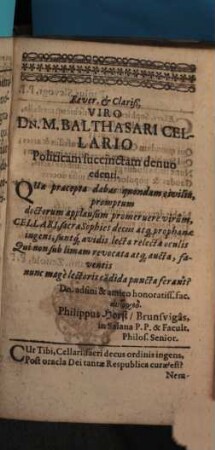 Rever. & Clariss.
VIRO
DN. M. BALTHASARI CEL-
LARIO
Politicam succinctam denuo
edenti.
Quæ præcepta dabas quondam civilia,
promptum
doctorum applausum promeruere virûm,
CELLARI, sacra Sophies decus atq; prophanæ
ingeni, suntq; avidis lecta relecta oculis
Qui non sub limam revocata atq; aucta, fa-
ventis
nunc magè lectoris cādida puncta ferant?
Dn. adfini & amico honoratiss. fac.
Philippus Horst / Brunsvigâs,
in Salana P.P. & Facult.
Philos. Senior.
CUr Tibi, Cellari, sacri decus ordinis ingens,
Post oracla Dei tantæ Respublica curæ est?
Nem-